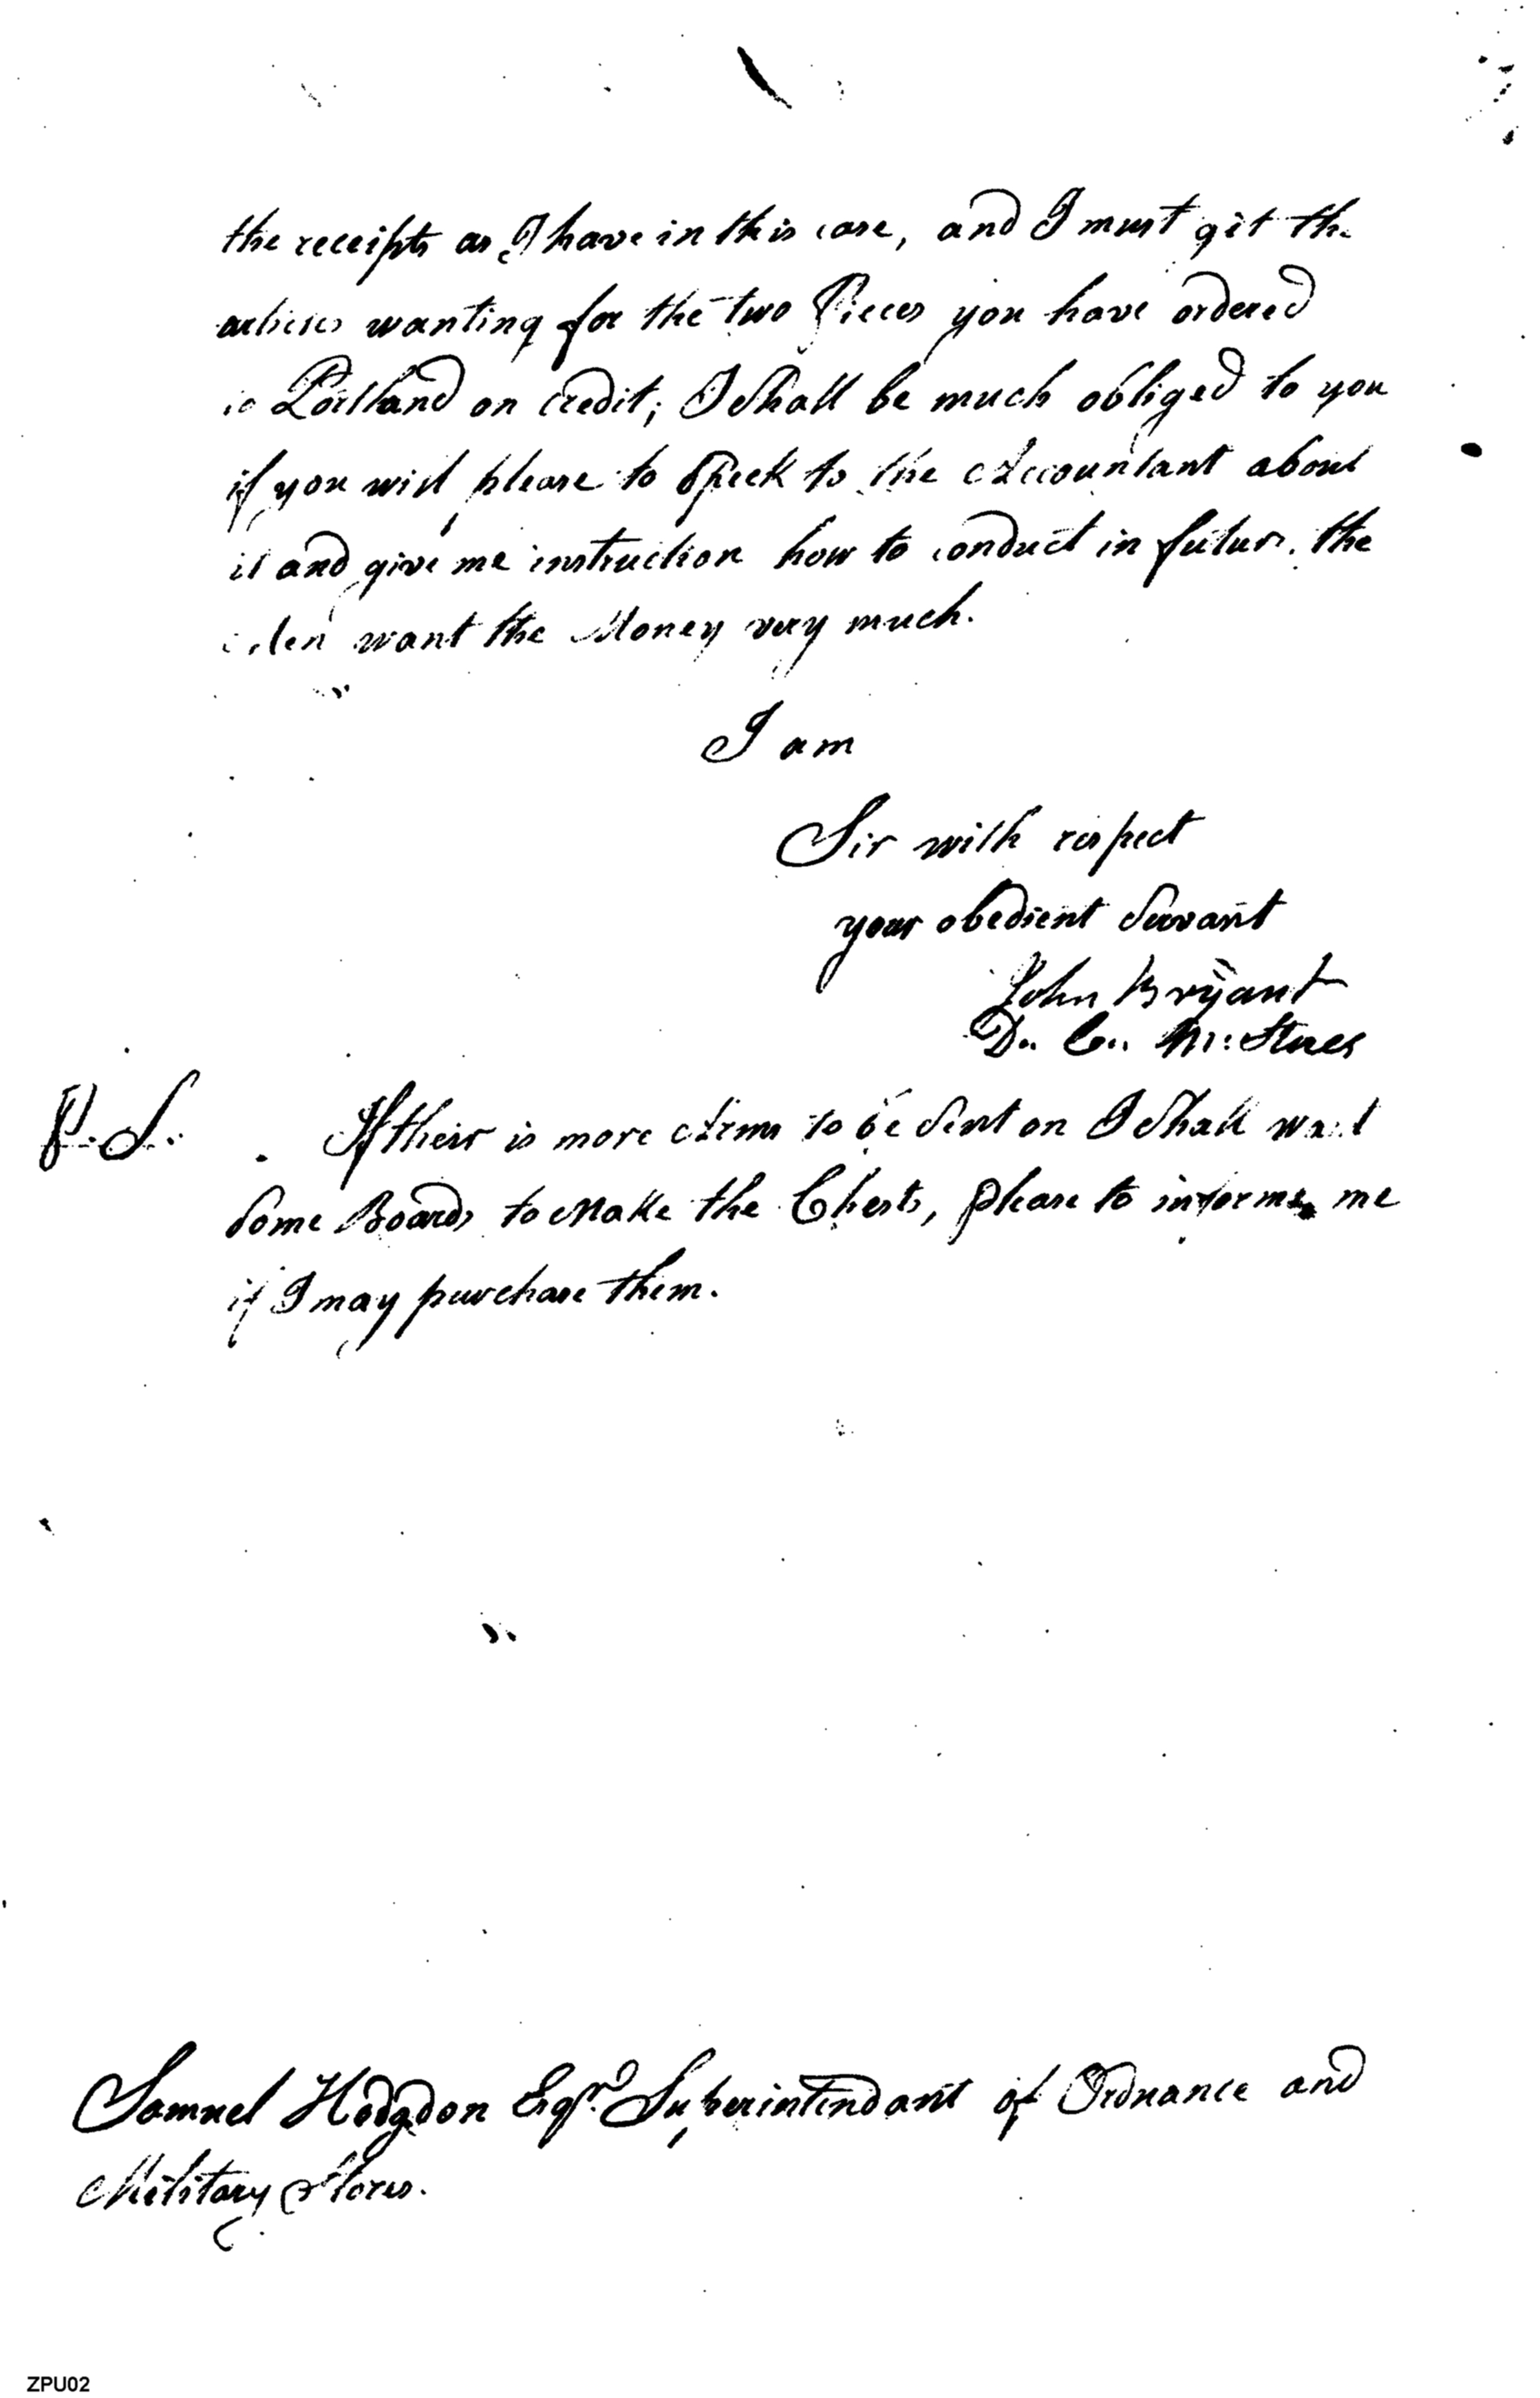 the receipts as I have in this case, and I must git the
articles wanting for the two Pieces you have ordered
to Portland on credit; I Shall be much obliged to you
if you will please to Speek to the Accountant about
it and give me instruction how to conduct in future. the
Men want the Money very much.
I am
Sir with respect
your obedient Servant
John Bryant
D.. C.. M: Stores
P.S. If their is more Arms to be Sent on I Shall want
Some Boards to Make the Chests, please to informe me
if I may purchase them.
Samuel Hodgdon Esqr. Superintendant of Ordnance and
Military Stores.
ZPU02